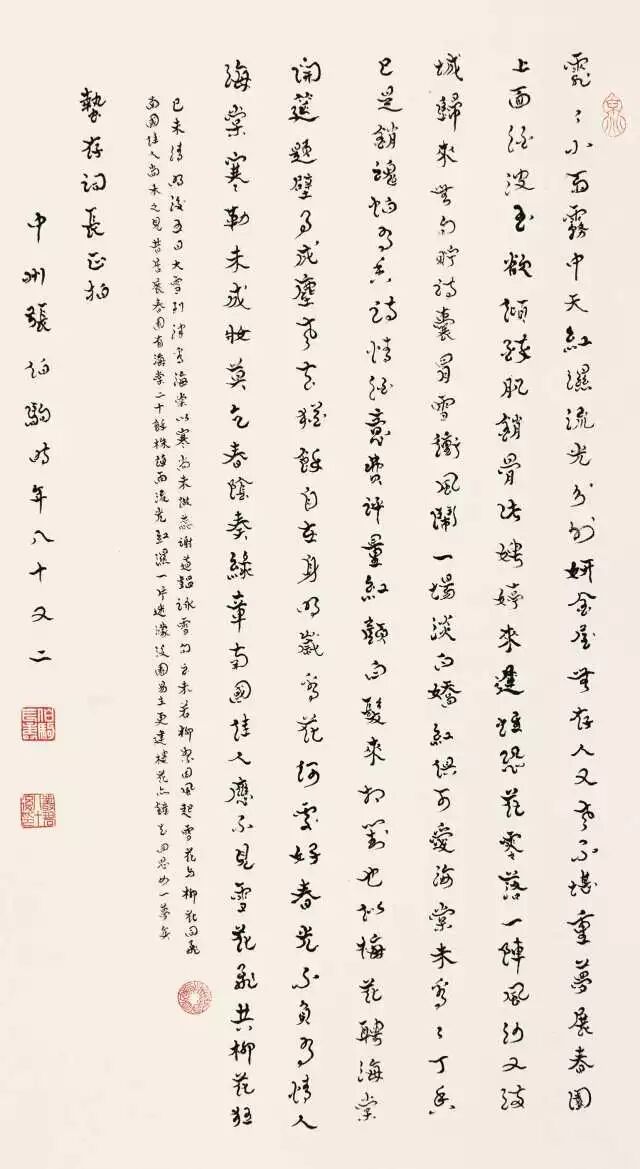 霏々小雨霧中天紅濕流光分外妍金屋無存人又老不堪重夢展春園
上面波玉欲傾肥銷骨比娉婷來遲惟恐花零落一陣風沙又滿
城歸來無句貯詩囊冒雪衝風鬧一場淡白嬌紅俱可愛海棠未看々丁香
已是銷魂惱為香詩情經意費評量紅顏白髮來相對也似梅花聘海棠
開筵題壁事成塵老去猶餘自在身明歲看花何處好春光不負為情人
海棠寒勒未成妝莫乞春陰奏綠章南國佳人應不見雪花飛共柳花狂
己未清明後五日大雪到津看海棠以寒尚未蕊謝道韞詠雪句云未若柳絮因風起雪花與柳花同飛
南國佳人尚未之見昔吾展春園有海棠二十餘株雨流光紅濕一片迷濛後園易主更建樓花亦鏟去回思如一夢矣
蟄存詞長正拍
中州張伯駒時年八十又二